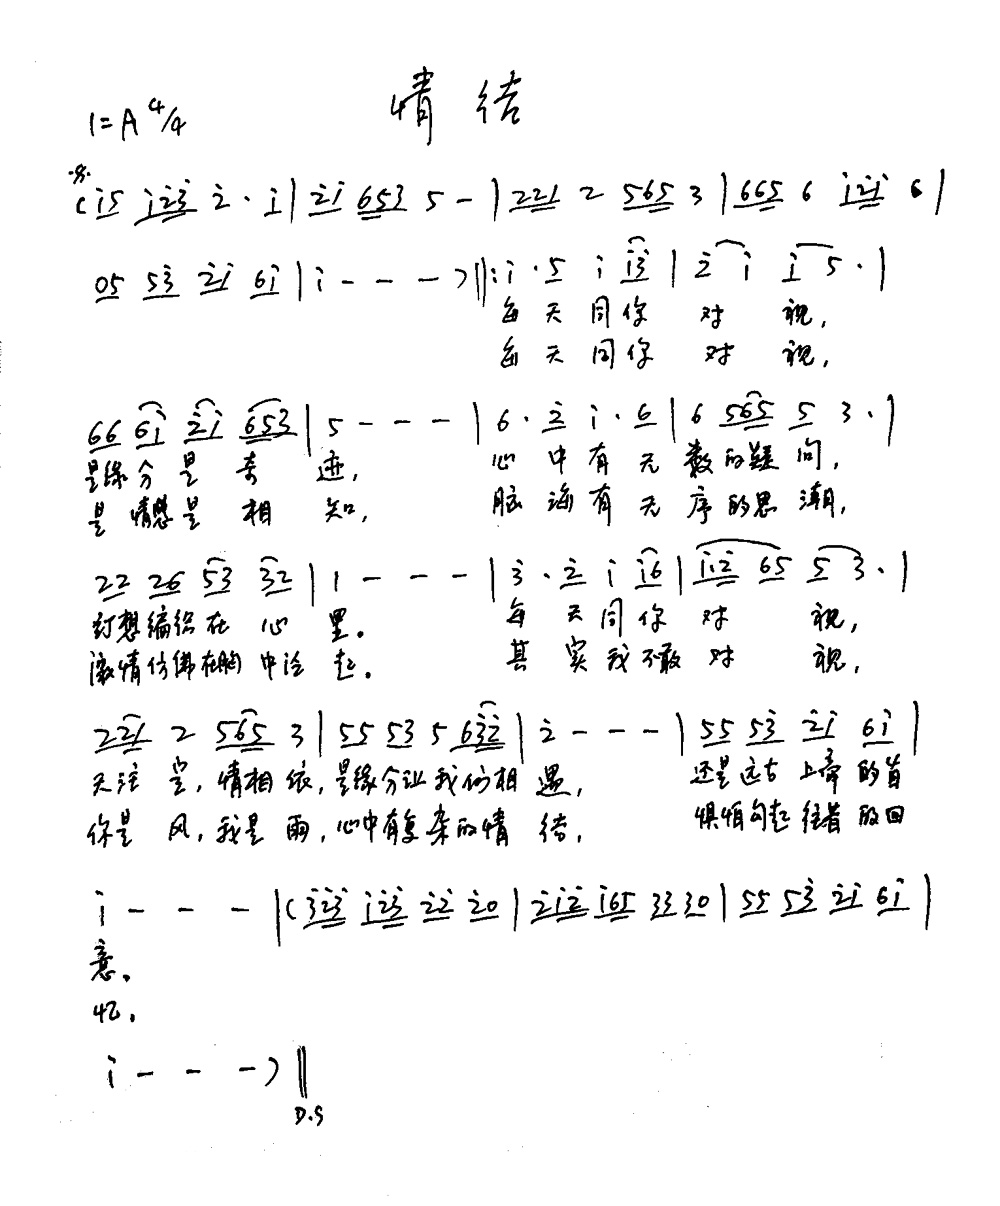 情结
1=A 4/4
(i5 i23 2 · i | 2i 653 5 - | 221 2 565 3 | 665 6 i2i 6 |
05 53 2i 6i | i - - - ) ‖: i · 5 i i3 | 2 i i 5 · |
每天同你对视,
每天同你对视,
66 6i 2i 653 | 5 - - - | 6 · 2 i · 6 | 6 565 5 3 · |
是缘分是奇迹, 心中有无数的疑问,
是情愁是相知, 脑海有无序的思潮,
22 26 53 32 | 1 - - - | 3 · 2 i i6 | ii2 65 5 3 · |
幻想编织在心里。 每天同你对视,
激情仿佛在胸中 起。 其实我不敢对视,
221 2 565 3 | 55 53 5 632 | 2 - - - | 55 53 2i 6i |
天注定,情相依,是缘分让我们相遇, 还是远古上帝的旨
你是风,我是雨,心中有复杂的情结, 惧怕勾起往昔的回
i - - - | ( 323 i23 22 20 | 2i2 i65 33 30 | 55 53 2i 6i |
意。
忆。
i - - - ) ‖
D.S